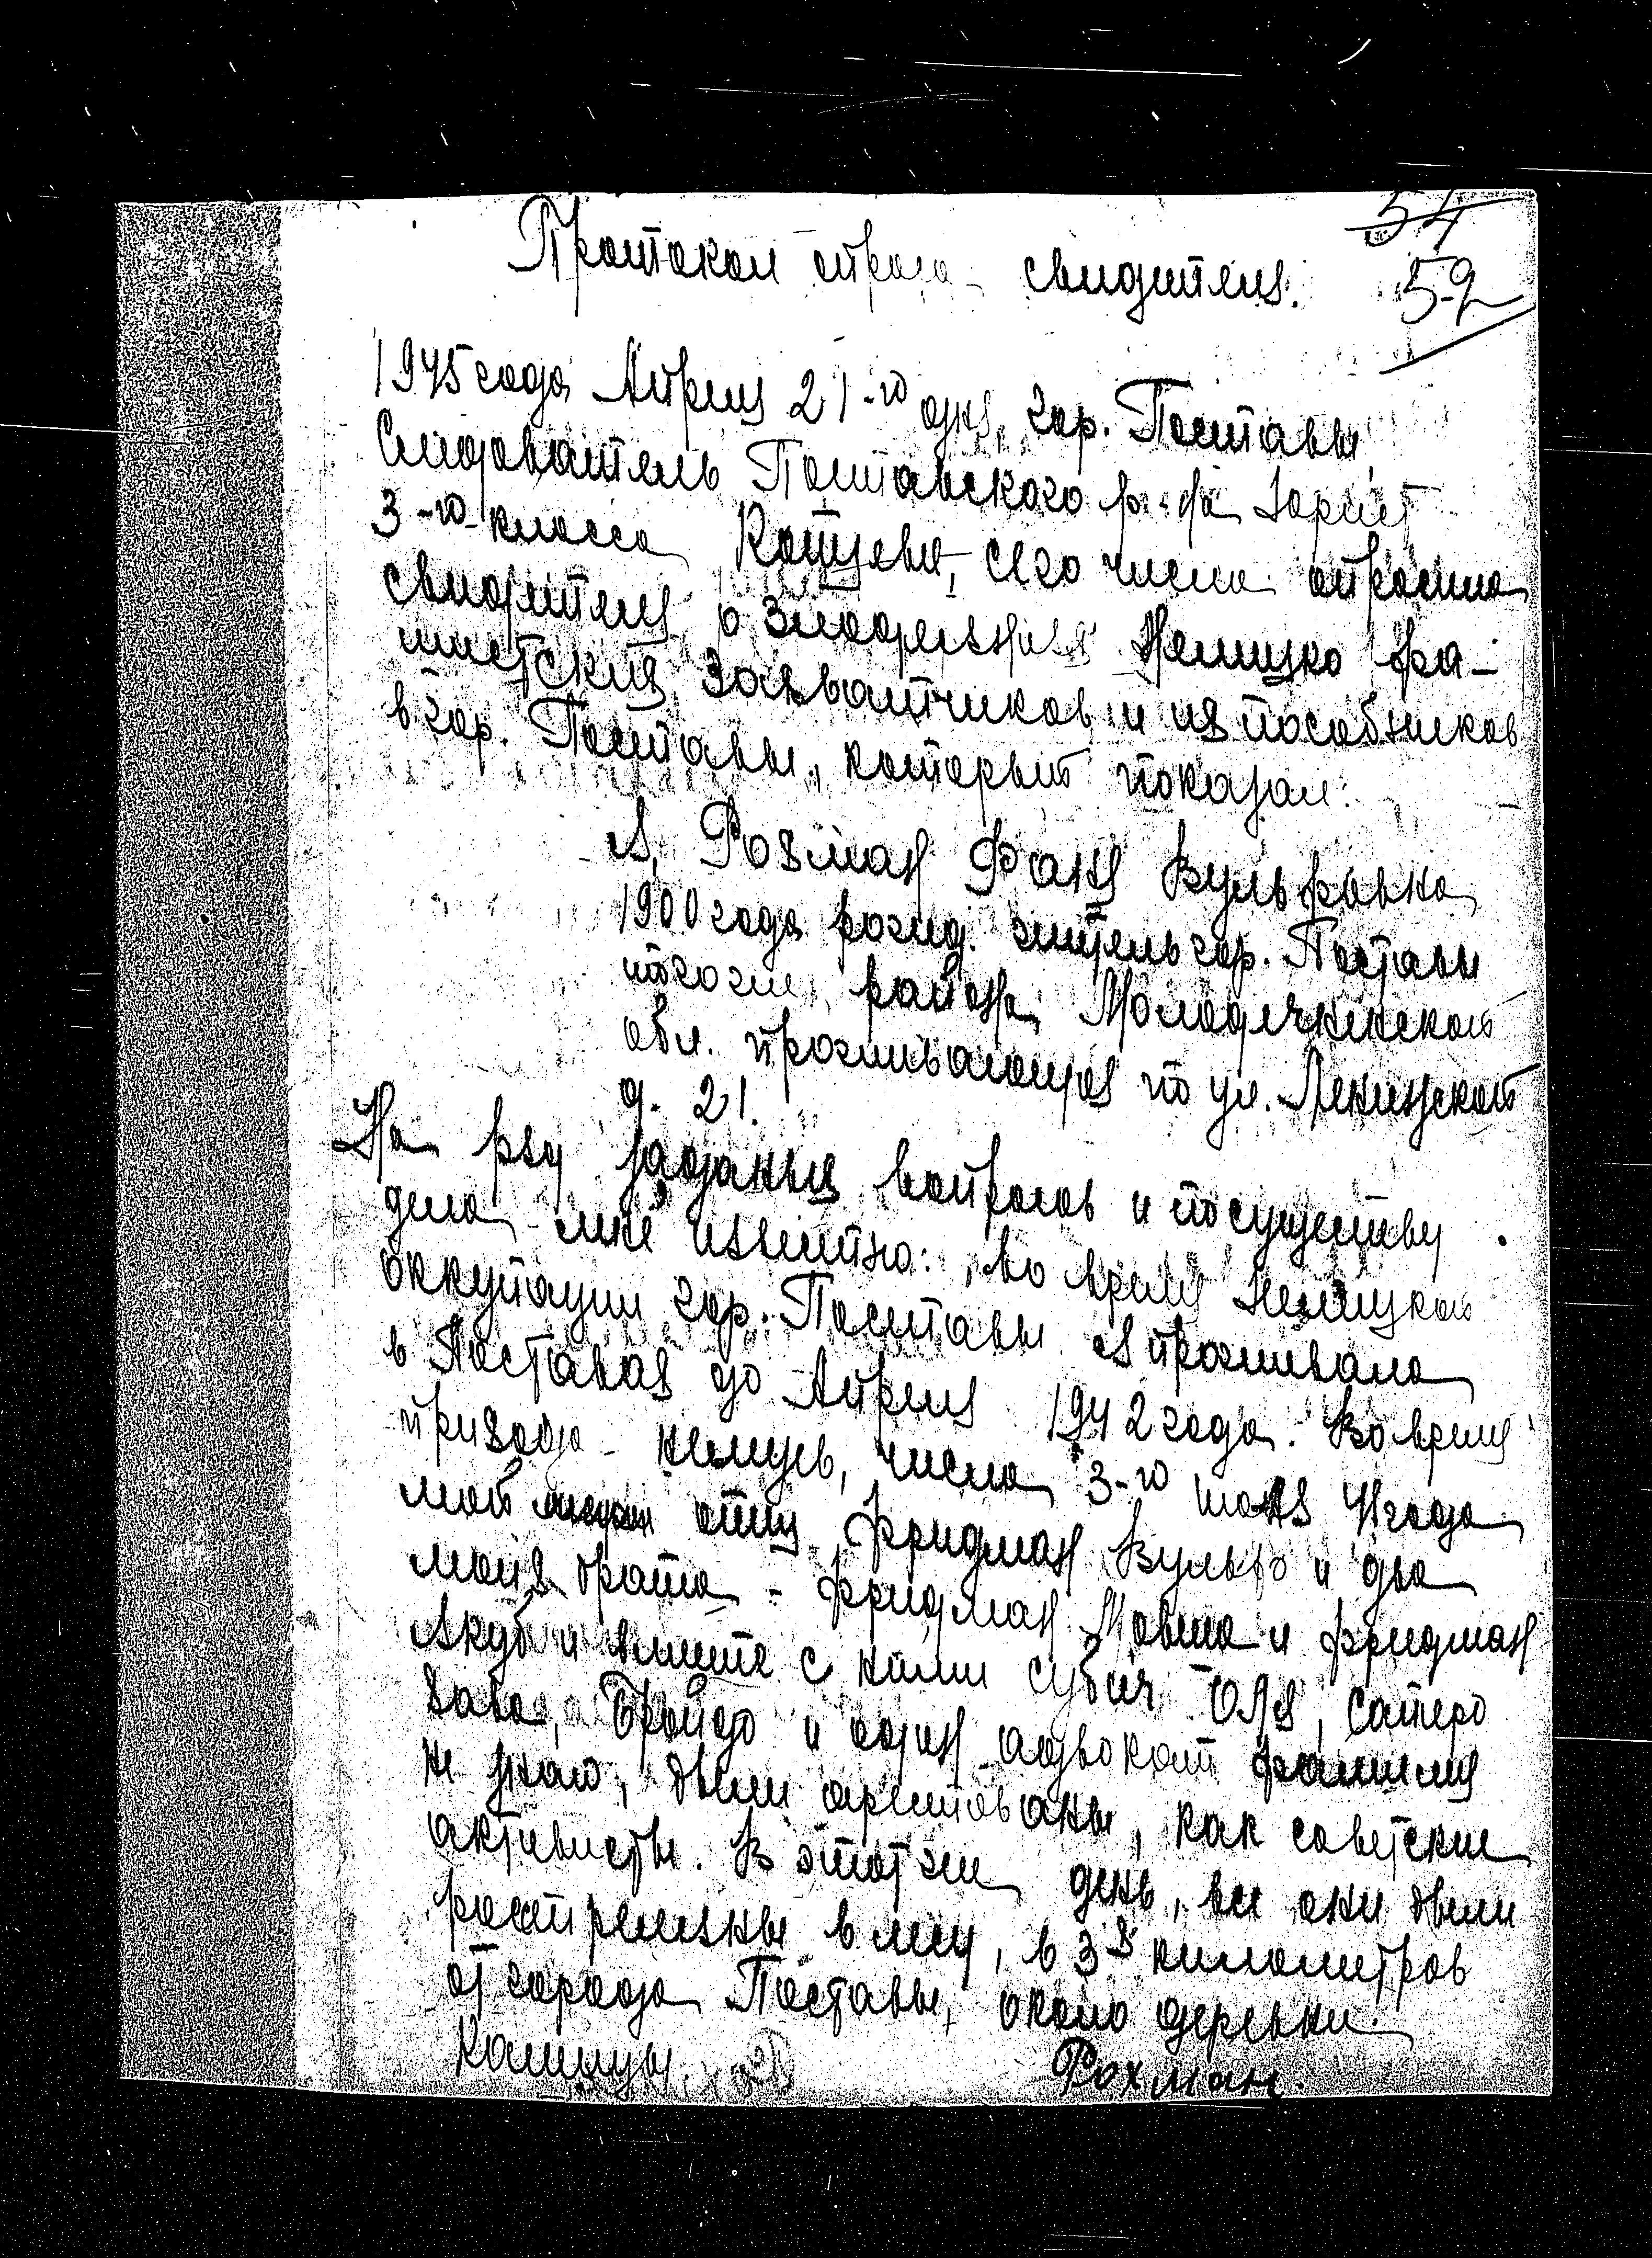 54
59
Протокол опроса свидетеля.
1945 года Апреля 21-го дня, гор. Поставы
Следователь Поставского р-на Юрист
3-го класса, сего числа опросила
свидетеля о злодеяниях Немецко фа-
шистских захватчиков и их пособников
в гор. Поставы, который показал:
Я, Рохман Фаня Вульфовна
1900 года рожд. житель гор. Поставы
того же района, Молодечненской
обл. проживающая по ул. Ленинской
д. 21.
На ряд заданных вопросов и по существу
дела мне известно: во время немецкой
оккупации гор. Поставы я проживала
в Поставах до Апреля 1942 года. Во время
прихода немцев, числа 3-го 41 года
мой отец Фридман Вульф и два
моих брата - Фридман Мовша и Фридман
Якуб и вместе с ними
и один адвокат фамилия
не знаю, были арестованы, как советские
активисты. В этот же день, все они были
расстреляны в лесу, в 3-х километров
от города Поставы, около деревни
Рохман.